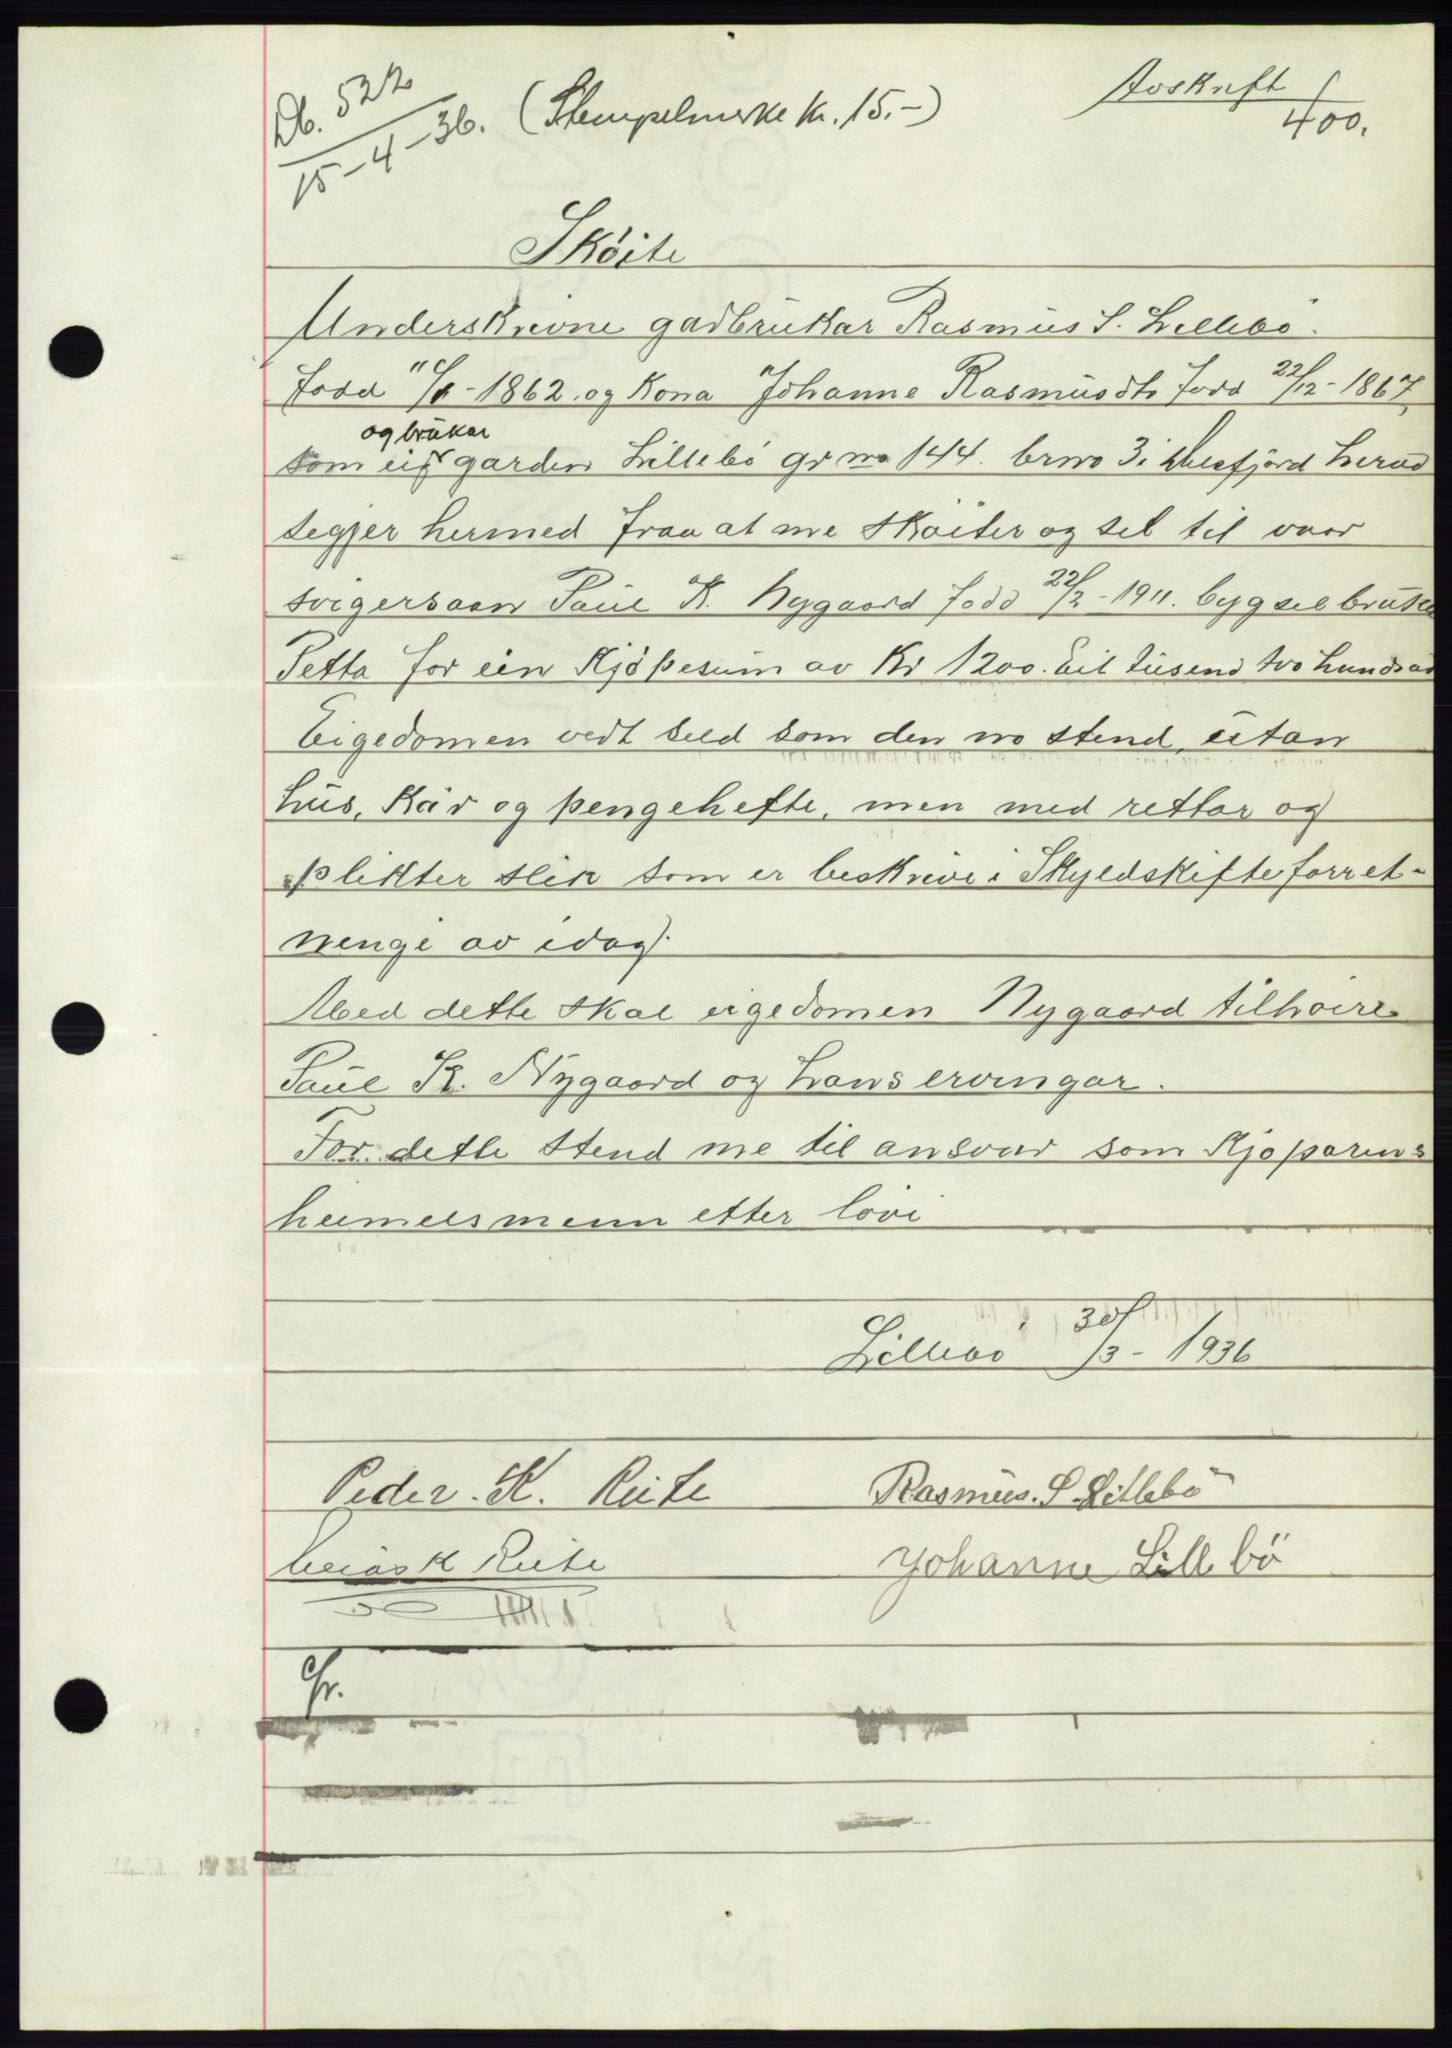 Db. 522
15-4-36. (Stempelmerke kr. 15.-)
Avskrift
400.
Sköite
Underskrivne gardbrukar Rasmus S. Lillebö.
fødd 11/1-1862. og kona Johanne Rasmusdtr fødd 22/12-1867,
og brukar
som eig garden Lillebö grno 144. brno 3 i herad
segjer hermed fraa at me sköiter og sel til vaar
svigersaan Paul K. Nygaard fødd 22/2-1911. bygselbruket
Petta for ein Kjöpesum av Kr 1200. Eit tusend tvo hundrad
Eigedomen vert seld som den no stend, utan
hus, Kår og pengehefte, men med rettar og
plikter slik som er beskrive i Skyldskifteforret-
nengi av idag.
Med dette skal eigedomen Nygaard tilhøire
Paul K. Nygaard og hans ervingar.
For dette stend me til ansvar som Kjøparens
heimelsmenn etter lovi
Lillebö 30/3-1936
Peder. K. Reite
Rasmus. S. Lillebö
K Reite
Johanne Lillebö